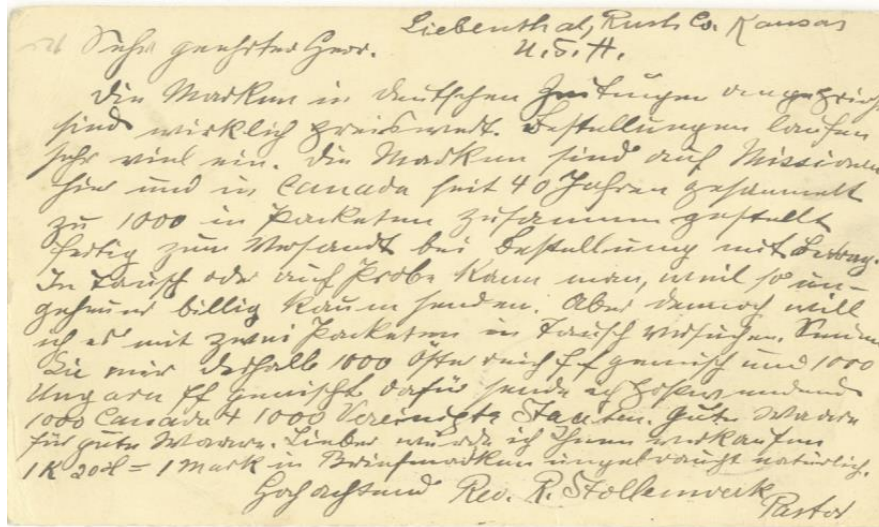 Liebenthal, Rush Co. Kansas
Sehr geehrter Herr. U.S.A.
Die Marken in deutschen Zeitungen angepriesen
sind wirklich preiswert. Bestellungen laufen
sehr viel ein. Die Marken sind auf Missionen
hier und in Canada seit 40 Jahren gesammelt
zu 1000 in Packeten zusammen gestellt
fertig zum Versandt bei Bestellung mit Betrag.
In Tausch oder auf Probe kann man, weil so un-
geheuer billig kaum senden. Aber dennoch will
ich es mit zwei Packeten in Tausch versuchen. Senden
Sie mir deshalb 1000 Österreich ff gemischt und 1000
Ungarn ff gemischt dafür sende ich postwendend
1000 Canada + 1000 Vereinigte Staaten. Gute Waare
für gute Waare. Lieber würde ich Ihnen verkaufen
1 K 20 H = 1 Mark in Briefmarken ungebraucht natürlich.
Hochachtend Rev. R. Stollenwerk
Pastor